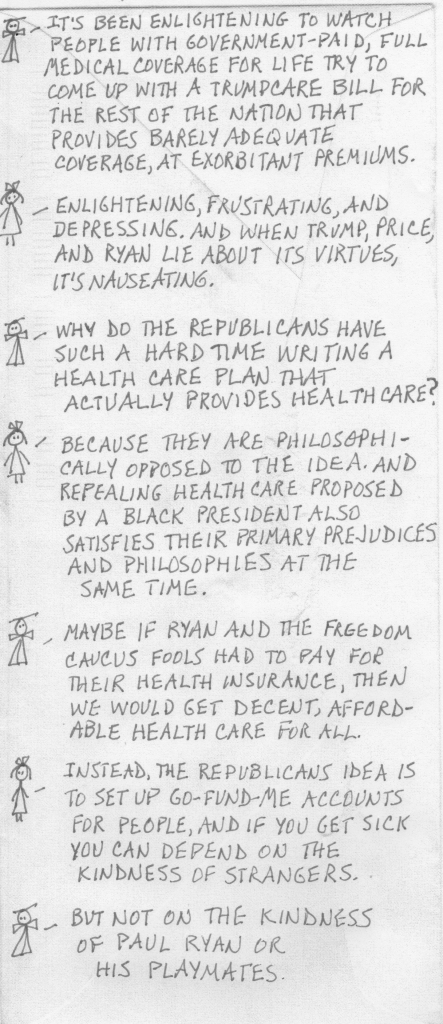 IT'S BEEN ENLIGHTENING TO WATCH
PEOPLE WITH GOVERNMENT-PAID, FULL
MEDICAL COVERAGE FOR LIFE TRY TO
COME UP WITH A TRUMPCARE BILL FOR
THE REST OF THE NATION THAT
PROVIDES BARELY ADEQUATE
COVERAGE, AT EXORBITANT PREMIUMS.
ENLIGHTENING, FRUSTRATING, AND
DEPRESSING. AND WHEN TRUMP, PRICE,
AND RYAN LIE ABOUT ITS VIRTUES,
IT'S NAUSEATING.
WHY DO THE REPUBLICANS HAVE
SUCH A HARD TIME WRITING A
HEALTH CARE PLAN THAT
ACTUALLY PROVIDES HEALTH CARE?
BECAUSE THEY ARE PHILOSOPHI-
CALLY OPPOSED TO THE IDEA. AND
REPEALING HEALTH CARE PROPOSED
BY A BLACK PRESIDENT ALSO
SATISFIES THEIR PRIMARY PREJUDICES
AND PHILOSOPHIES AT THE
SAME TIME.
MAYBE IF RYAN AND THE FREEDOM
CAUCUS FOOLS HAD TO PAY FOR
THEIR HEALTH INSURANCE, THEN
WE WOULD GET DECENT, AFFORD-
ABLE HEALTH CARE FOR ALL.
INSTEAD, THE REPUBLICANS IDEA IS
TO SET UP GO-FUND-ME ACCOUNTS
FOR PEOPLE, AND IF YOU GET SICK
YOU CAN DEPEND ON THE
KINDNESS OF STRANGERS.
BUT NOT ON THE KINDNESS
OF PAUL RYAN OR
HIS PLAYMATES.